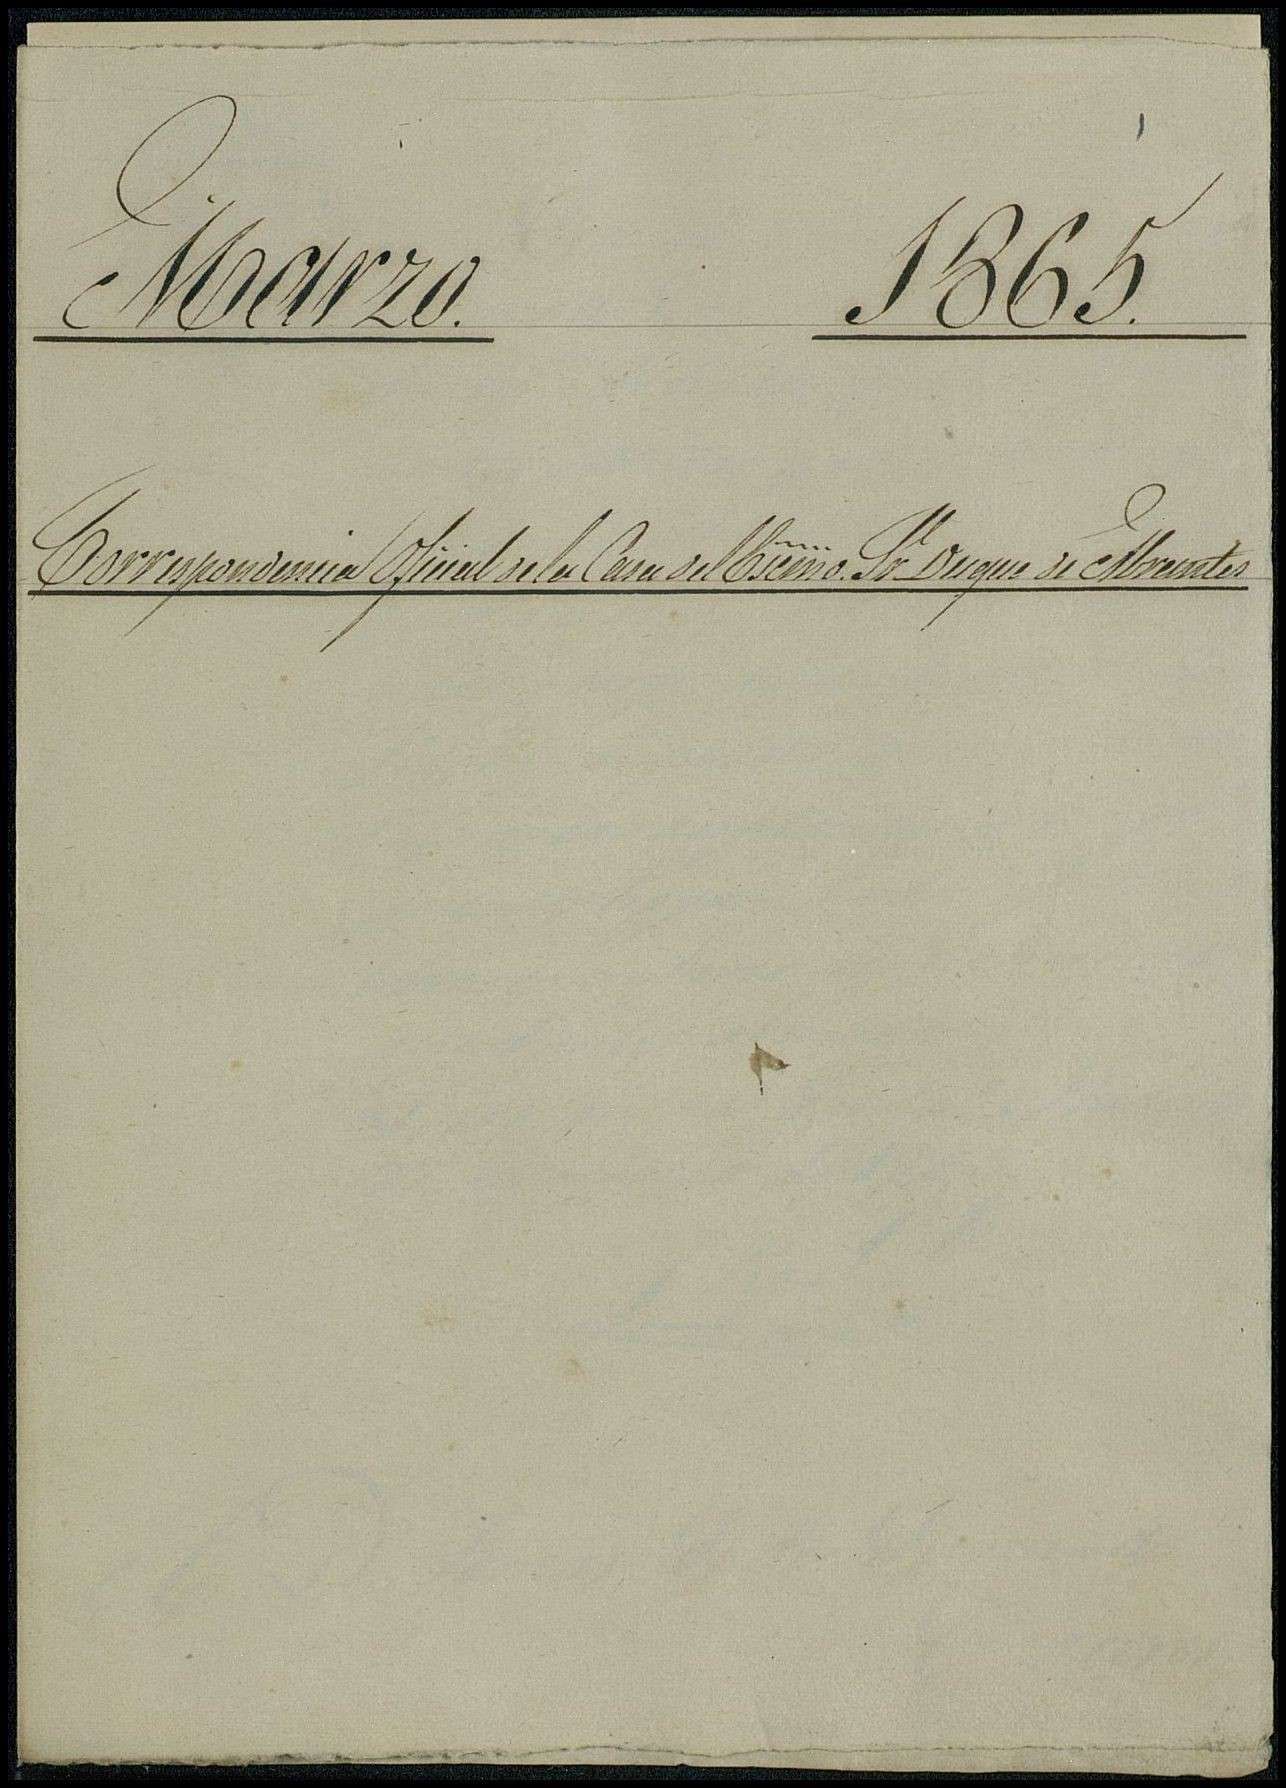 Marzo. 1865.
Correspondencia Oficial de la Casa del Escmo. Sr. Duque de Abrantes